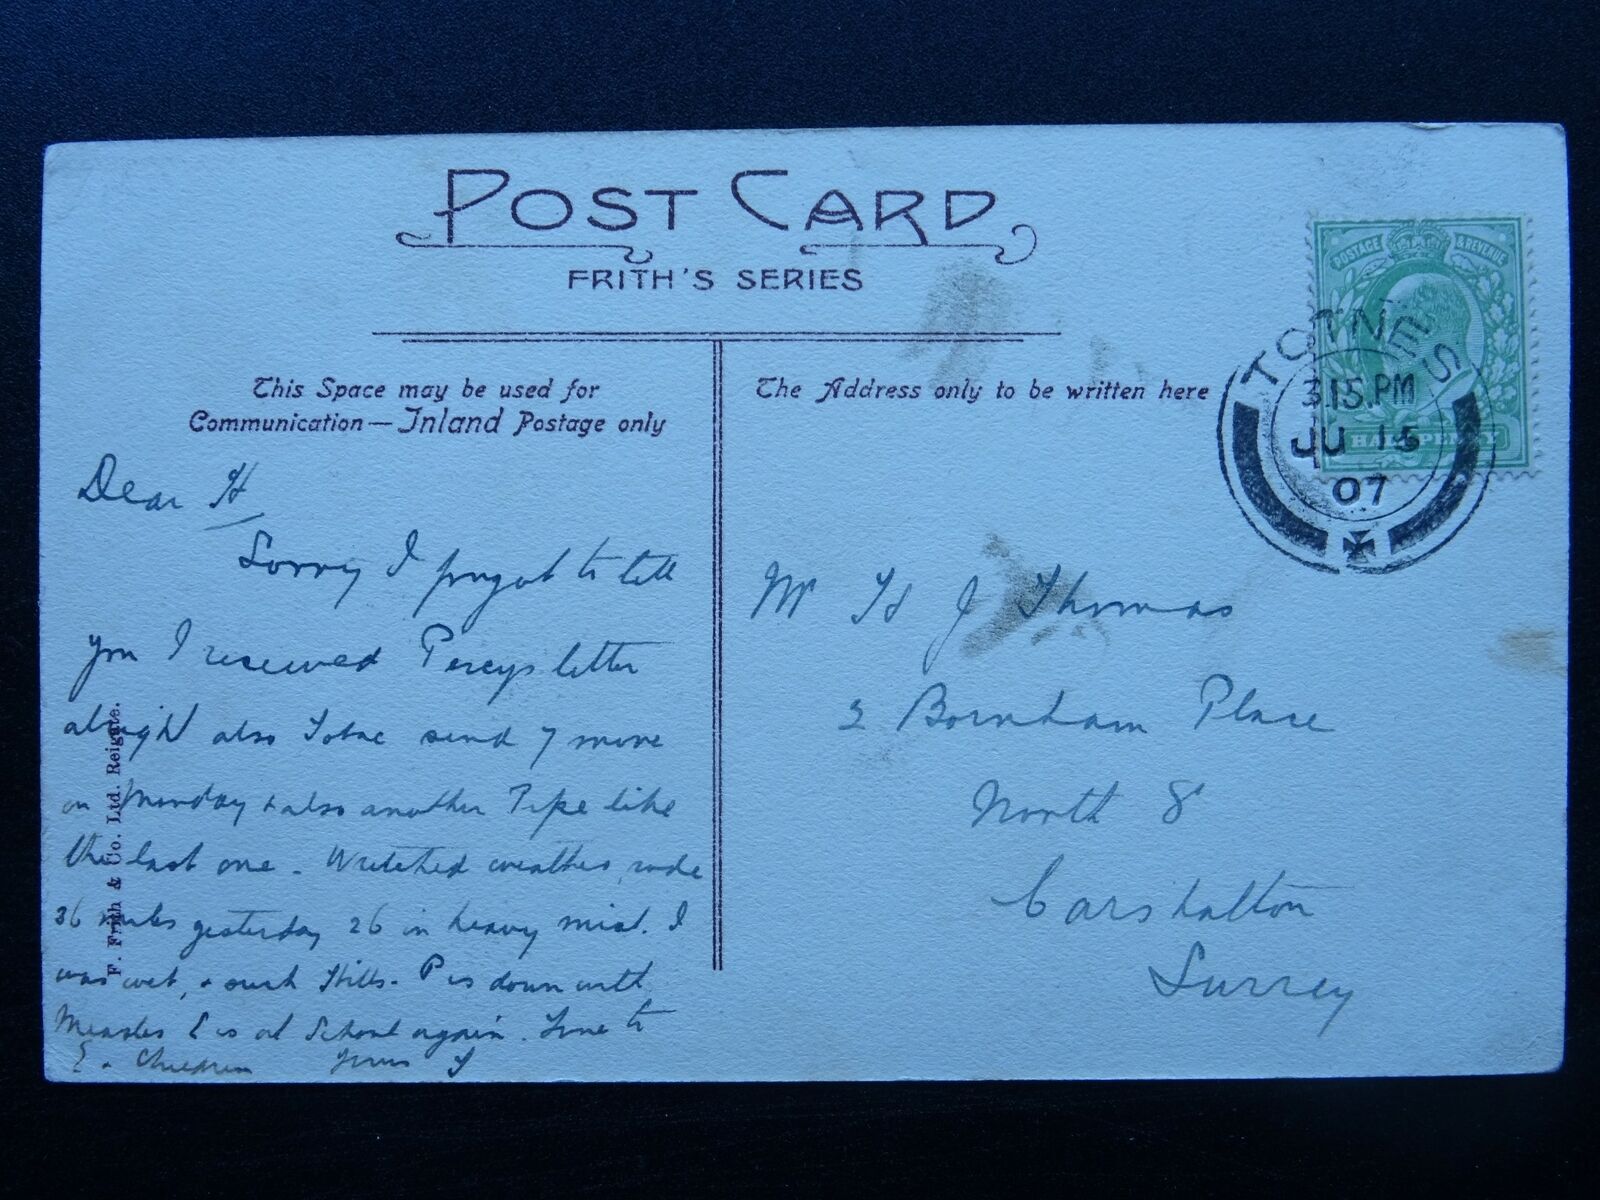 POST CARD
FRITH'S SERIES
This Space may be used for
Communication — Inland Postage only
The Address only to be written here
POSTAGE & REVENUE
HALFPENNY
TOTNES
3.15.PM
JU 15
07
Dear H
Sorry I forgot to tell
you I received Percys letter
alright also Tobac send 7 more
on Monday & also another Pipe like
the last one. Wretched weather, rode
36 miles yesterday 26 in heavy mist. I
was wet, & such Hills. P is down with
Measles E is at School again. Love to
E & Children Yours
Mr H J Thomas
2 Bornham Place
North St
Carshalton
Surrey
F. Frith & Co. Ltd. Reigate.